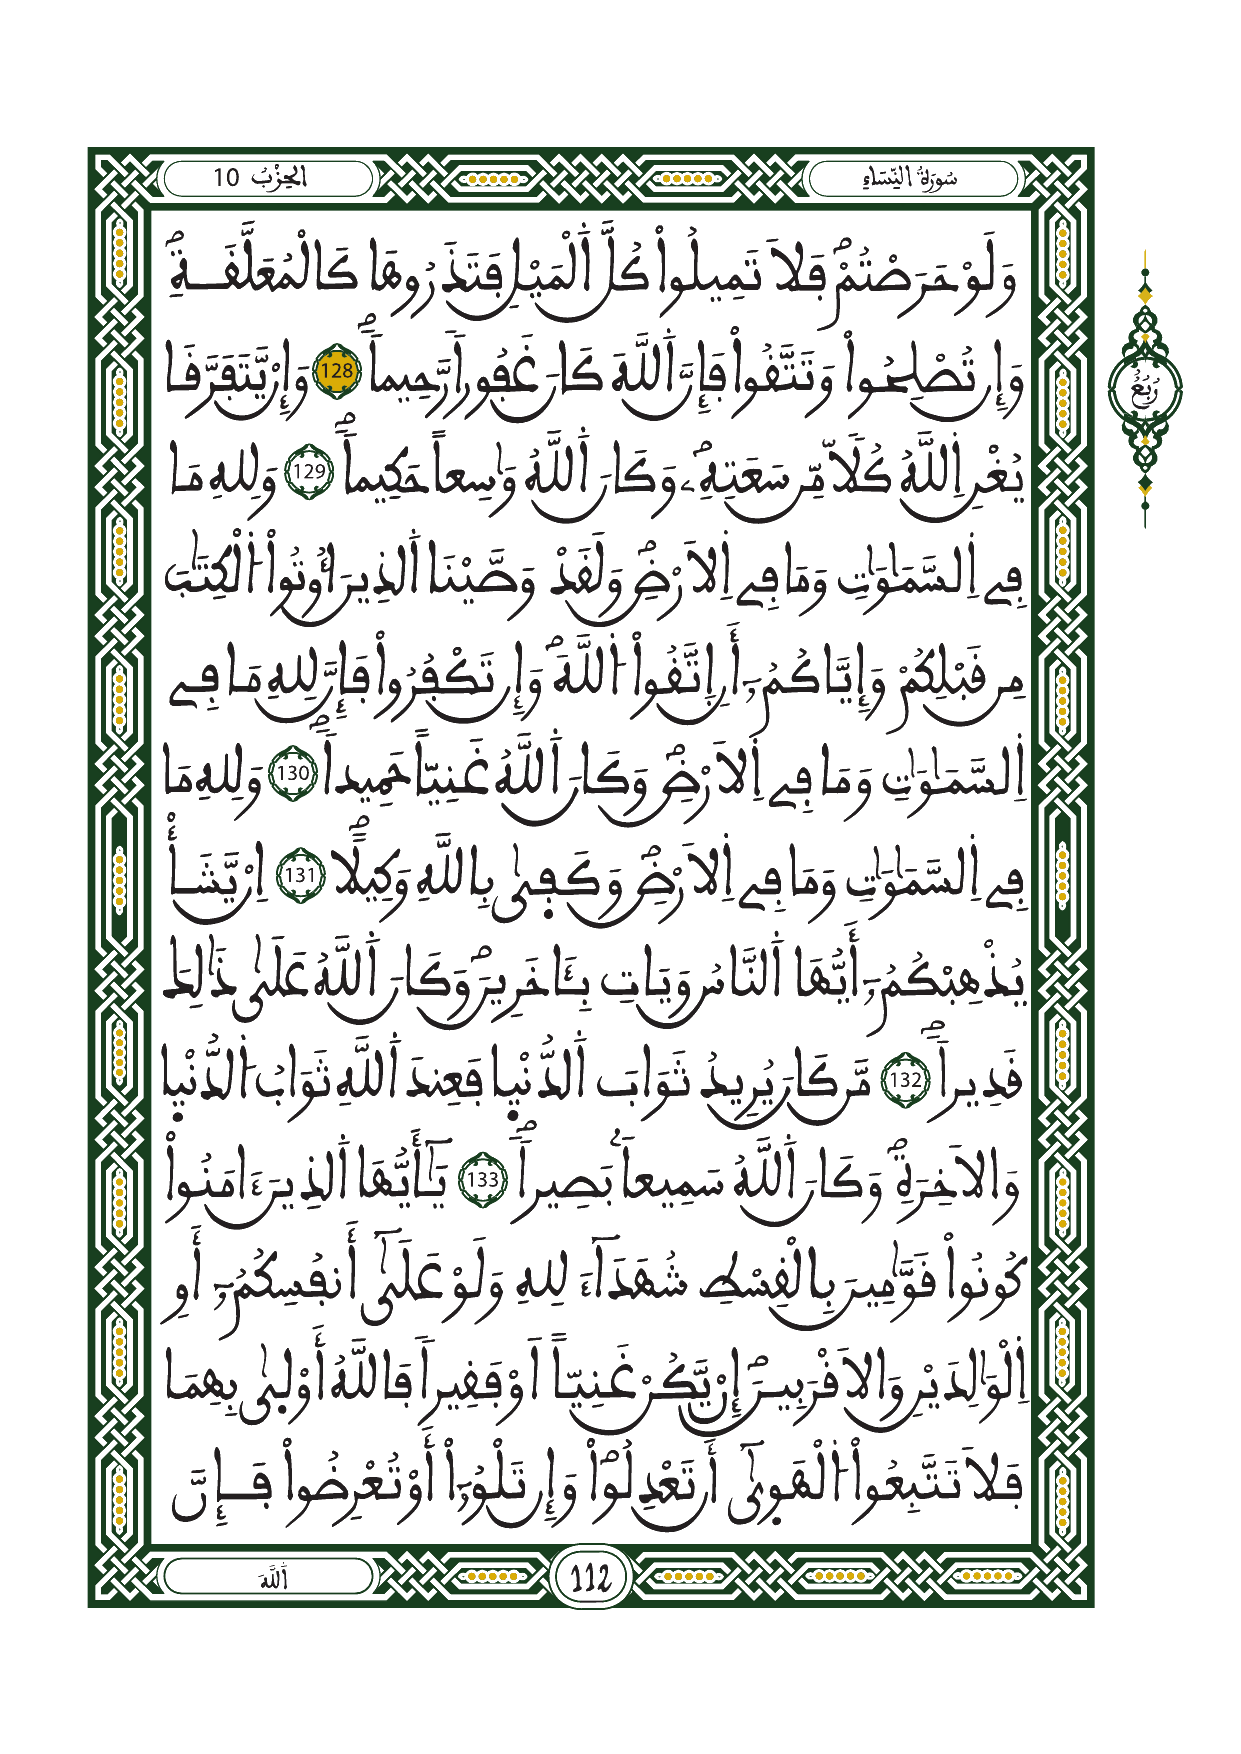 سُورَةُ النِّسَاءِ
الحِزْبُ 10
وَلَوْ حَرَصْتُمْ فَلَا تَمِيلُواْ كُلَّ اَ۬لْمَيْلِ فَتَذَرُوهَا كَالْمُعَلَّقَةِۖ
وَإِن تُصْلِحُواْ وَتَتَّقُواْ فَإِنَّ اَ۬للَّهَ كَانَ غَفُوراٗ رَّحِيماٗۖ 128 وَإِنْ يَّتَفَرَّقَا
يُغْنِ اِ۬للَّهُ كُلّاٗ مِّن سَعَتِهِۦۖ وَكَانَ اَ۬للَّهُ وَٰسِعاً حَكِيماٗۖ 129 وَلِلهِ مَا
فِے اِ۬لسَّمَٰوَٰتِ وَمَا فِے اِ۬لَارْضِۖ وَلَقَدْ وَصَّيْنَا اَ۬لذِينَ أُوتُواْ اُ۬لْكِتَٰبَ
مِن قَبْلِكُمْ وَإِيَّاكُمُۥٓ أَنِ اِ۪تَّقُواْ اُ۬للَّهَۖ وَإِن تَكْفُرُواْ فَإِنَّ لِلهِ مَا فِے
اِ۬لسَّمَٰوَٰتِ وَمَا فِے اِ۬لَارْضِۖ وَكَانَ اَ۬للَّهُ غَنِيّاً حَمِيداٗۖ 130 وَلِلهِ مَا
فِے اِ۬لسَّمَٰوَٰتِ وَمَا فِے اِ۬لَارْضِۖ وَكَف۪ىٰ بِاللَّهِ وَكِيلاًۖ 131 اِنْ يَّشَأْ
يُذْهِبْكُمُۥٓ أَيُّهَا اَ۬لنَّاسُ وَيَاتِ بِـَٔاخَرِينَۖ وَكَانَ اَ۬للَّهُ عَلَىٰ ذَٰلِكَ
قَدِيراٗۖ 132 مَّن كَانَ يُرِيدُ ثَوَابَ اَ۬لدُّنْي۪ا فَعِندَ اَ۬للَّهِ ثَوَابُ اُ۬لدُّنْي۪ا
وَالَاخِرَةِۖ وَكَانَ اَ۬للَّهُ سَمِيعاَۢ بَصِيراٗۖ 133 يَٰٓأَيُّهَا اَ۬لذِينَ ءَامَنُواْ
كُونُواْ قَوَّٰمِينَ بِالْقِسْطِ شُهَدَآءَ لِلهِ وَلَوْ عَلَىٰٓ أَنفُسِكُمُۥٓ أَوِ
اِ۬لْوَٰلِدَيْنِ وَالَاقْرَبِينَۖ إِنْ يَّكُنْ غَنِيّاً اَوْ فَقِيراٗ فَاللَّهُ أَوْل۪ىٰ بِهِمَا
فَلَا تَتَّبِعُواْ اُ۬لْهَو۪ىٰٓ أَن تَعْدِلُواْۖ وَإِن تَلْوُۥٓاْ أَوْ تُعْرِضُواْ فَإِنَّ
رُبُعُ
112
اَ۬للَّهَ